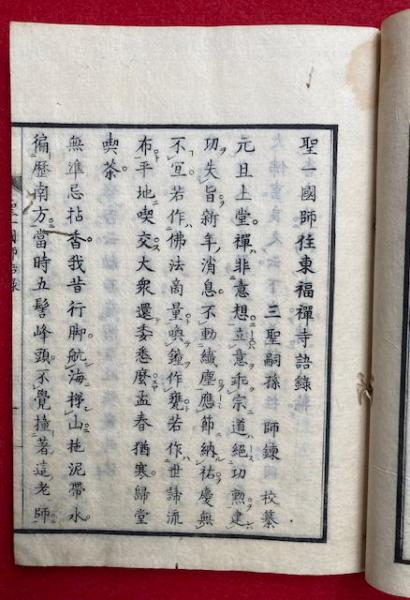 聖一國師住東福禪寺語錄
三聖嗣孫 師鍊 校纂
元旦上堂禪非意想立意乖宗道絕功勲建
功失旨新年消息不動纖塵應節納祐慶無
不宜若作佛法商量喚鐘作甕若作世諦流
布平地喫交大衆還委悉麼孟春猶寒歸堂
喫茶
無準忌拈香我昔行脚航海梯山拖泥帶水
徧歷南方當時五髻峰頭不覺撞著這老師